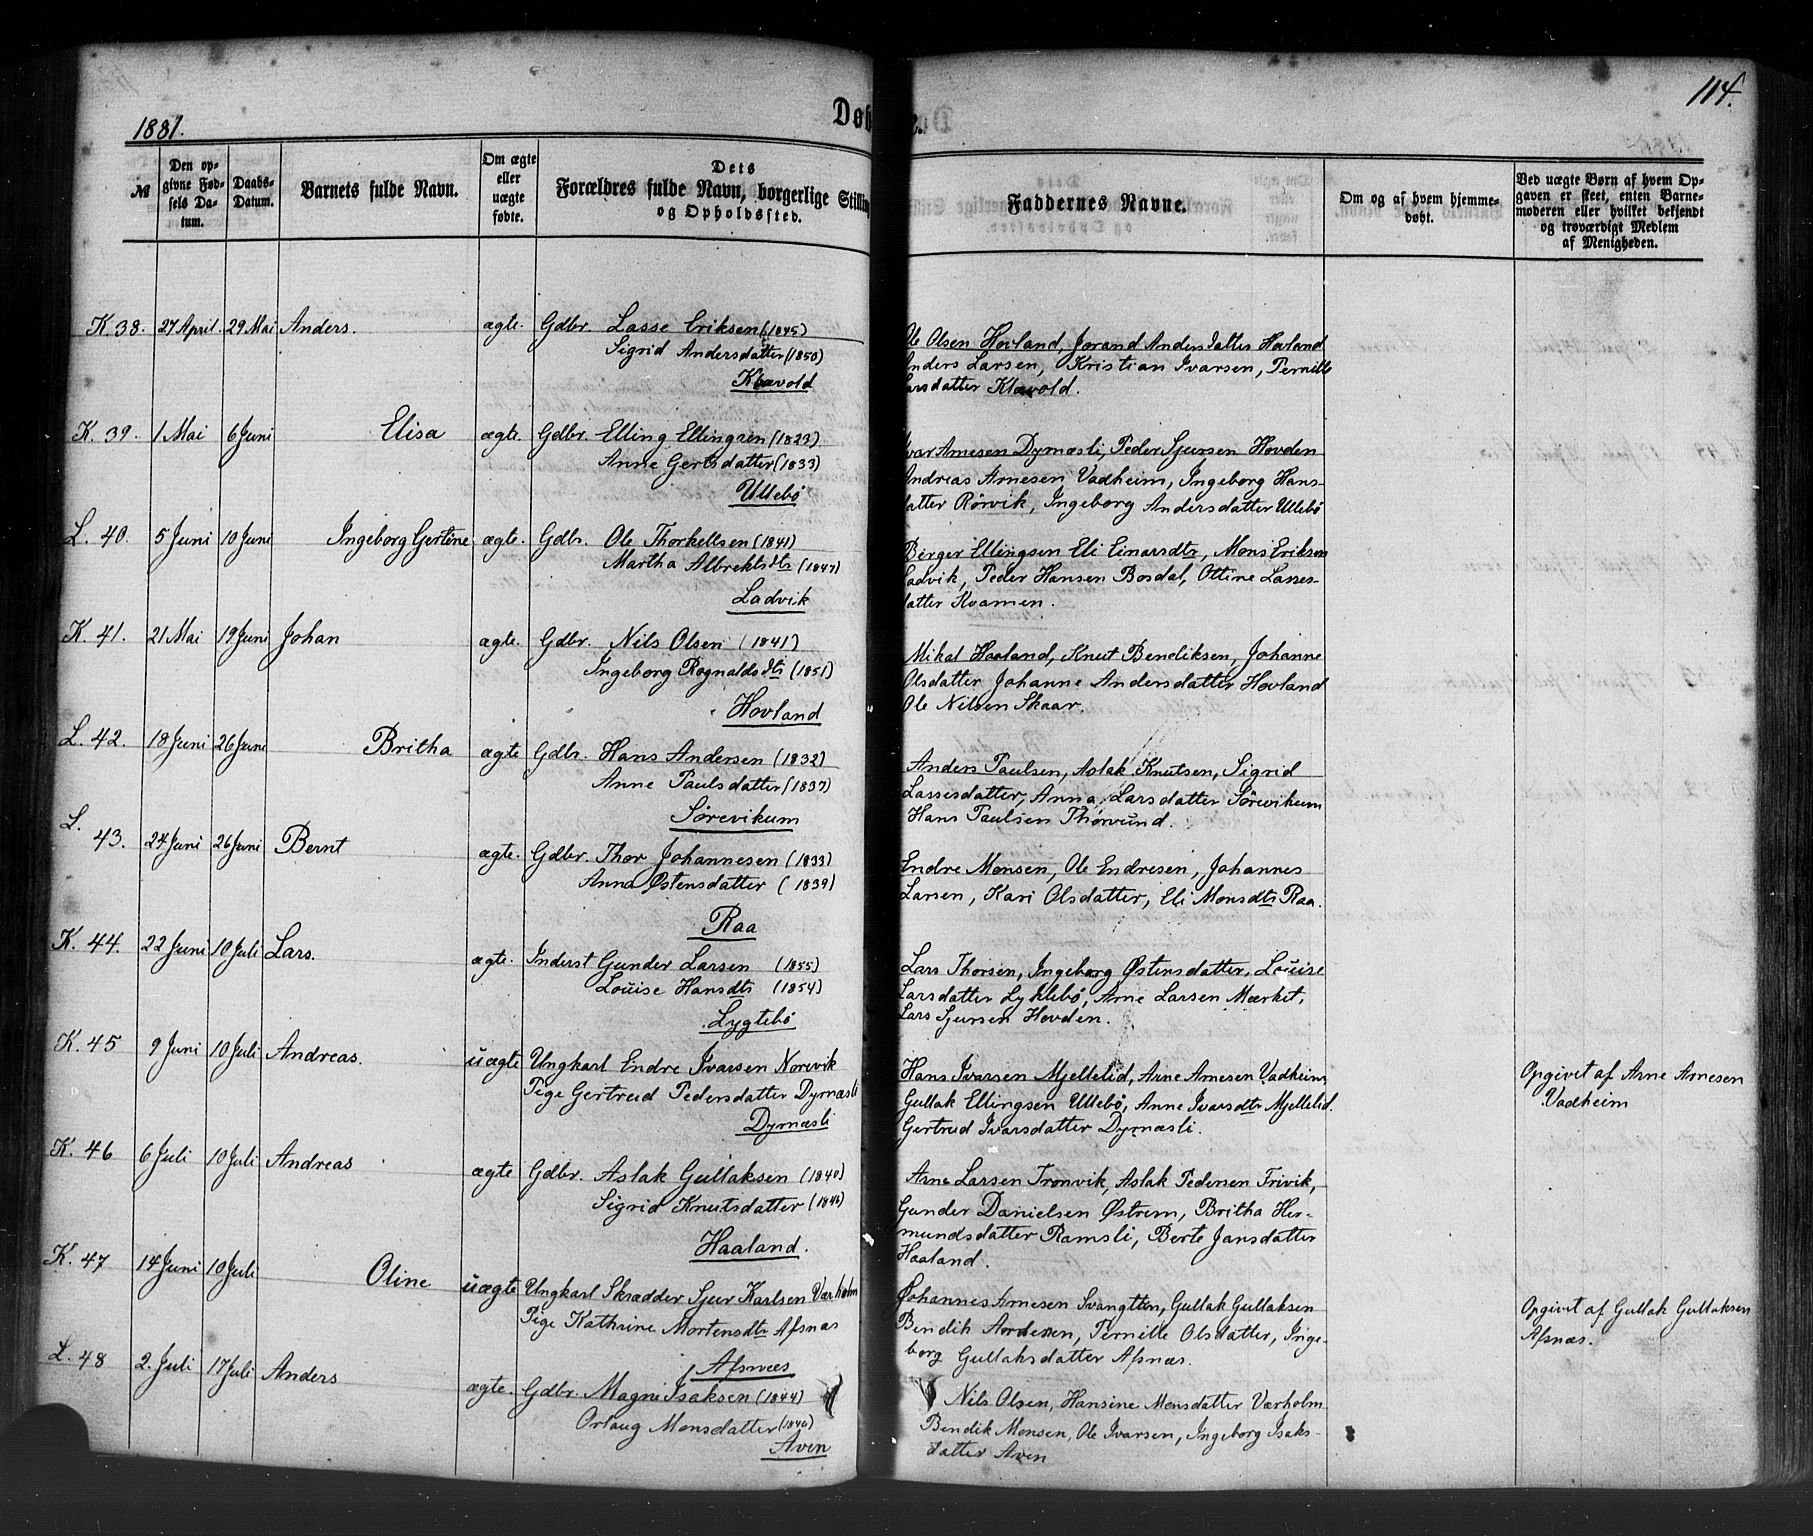 1881.
Døb
2.
114.
№
Den op-
givne Fød-
sels Da-
tum.
Daabs-
Datum.
Barnets fulde Navn.
Om ægte
eller
uægte
fødte.
Dets
Forældres fulde Navn, borgerlige Stilling
og Opholdssted.
Faddernes Navne.
Om og af hvem hjemme-
døbt.
Ved uægte Børn af hvem Op-
gaven er skeet, enten Barne-
moderen eller hvilket bekjendt
og troværdigt Medlem
af Menigheden.
K. 38. 27 April. 29 Mai Anders. ægte. Gdbr. Lasse Eriksen (1845)
Sigrid Andersdatter (1850)
Klævold
Ole Olsen Hovland, Jorand Andersdatter Hovland
Anders Larsen, Kristian Ivarsen, Pernille
Larsdatter Klævold.
K. 39. 1 Mai 6 Juni Elisa ægte. Gdbr. Elling Ellingsen (1823)
Anne Gertsdatter (1833)
Ullebø
Ivar Arnesen Dyrnæsli, Peder Sjursen Hovden
Andreas Arnesen Vadheim, Ingeborg Hans-
datter Rørvik, Ingeborg Andersdatter Ullebø
L. 40. 5 Juni 10 Juni Ingeborg Gertine ægte. Gdbr. Ole Thorkellsen (1841)
Martha Albrektsdtr (1847)
Ladvik
Berger Ellingsen Eli Einarsdtr, Mons Eriksen
Ladvik, Peder Hansen Bosdal, Ottine Lasses-
datter Kvamen.
K. 41. 21 Mai 19 Juni Johan ægte. Gdbr. Nils Olsen (1841)
Ingeborg Rognaldsdtr (1851)
Hovland
Mikal Haaland, Knut Bendiksen, Johanne
Olsdatter Johanne Andersdatter Hovland
Ole Nilsen Skaar.
L. 42. 18 Juni 26 Juni Britha ægte Gdbr. Hans Andersen (1832)
Anne Paulsdatter (1837)
Sørevikum
Anders Paulsen, Aslak Knutsen, Sigrid
Lassesdatter, Anna Larsdatter Sørevikum
Hans Paulsen Thorvund.
L. 43. 24 Juni 26 Juni Bernt ægte. Gdbr. Thor Johannesen (1833)
Anna Østensdatter (1839)
Raa
Endre Monsen, Ole Endresen, Johannes
Larsen, Kari Olsdatter, Eli Monsdtr Raa.
K. 44. 22 Juni 10 Juli Lars. ægte. Inderst Gunder Larsen (1855)
Louise Hansdtr (1854)
Lygtebø
Lars Thorsen, Ingeborg Østensdatter, Louise
Larsdatter Lyktebø, Arne Larsen Mærket,
Lars Sjursen Hovden.
K. 45 9 Juni 10 Juli Andreas. uægte Ungkarl Endre Ivarsen Norevik
Pige Gertrud Pedersdatter Dyrnæsli
Dyrnæsli
Hans Ivarsen Mjellelid, Arne Arnesen Vadheim,
Gullak Ellingsen Ullebø, Anne Ivarsdtr Mjellelid.
Gertrud Ivarsdatter Dyrnæsli.
Opgivet af Arne Arnesen
Vadheim
K. 46 6 Juli 10 Juli Andreas ægte Gdbr. Aslak Gullaksen (1840)
Sigrid Knutsdatter (1846)
Haaland.
Arne Larsen Tronvik, Aslak Pedersen Trivik,
Gunder Danielsen Østrem, Britha Her-
mundsdatter Ramsli, Berte Jansdatter
Haaland.
K. 47 14 Juni 10 Juli Oline uægte Ungkarl Skrædder Sjur Karlsen Værholm
Pige Kathrine Mortensdtr Afsnæs
Afsnæs
Johannes Arnesen Svangtun, Gullak Gullaksen
Bendik Andersen, Pernille Olsdatter, Inge-
borg Gullaksdatter Afsnæs.
Opgivet af Gullak Gullaksen
Afsnæs.
L. 48 2. Juli 17 Juli Anders ægte. Gdbr. Magne Isaksen (1844)
Orlaug Monsdatter (1846)
Aven
Nils Olsen, Hansine Monsdatter Værholm
Bendik Monsen, Ole Ivarsen, Ingeborg Isaks-
datter Aven